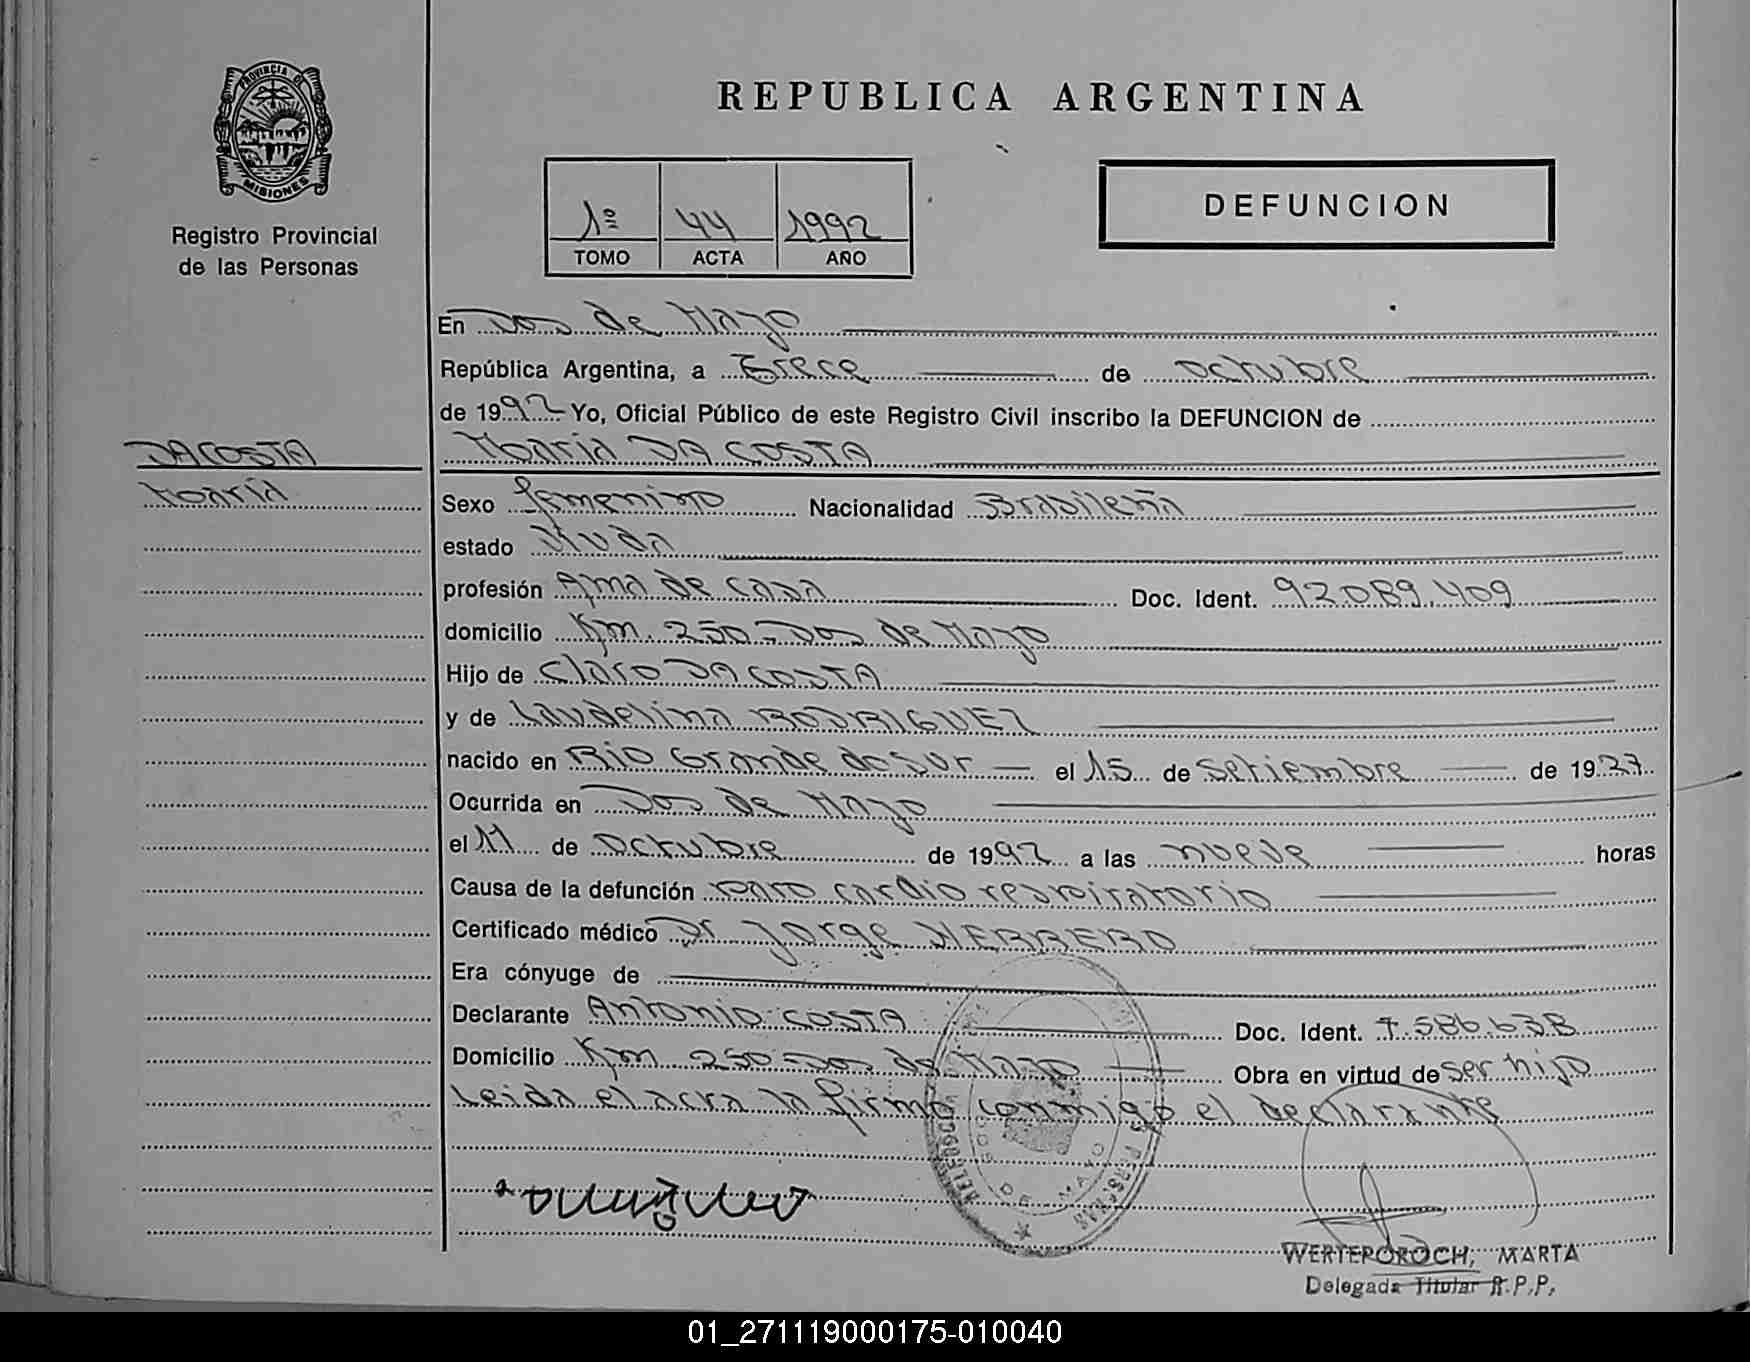 PROVINCIA D
MISIONES
Registro Provincial
de las Personas
REPUBLICA ARGENTINA
1º 44 1992
TOMO ACTA AÑO
DEFUNCION
En Dos de Mayo
República Argentina, a Trece de octubre
de 1992 Yo, Oficial Público de este Registro Civil inscribo la DEFUNCION de
DA COSTA
María DA COSTA
María
Sexo femenino Nacionalidad Brasileña
estado Viuda
profesión Ama de casa Doc. Ident. 92.089.409
domicilio Km. 250 - Dos de Mayo
Hijo de Claro DA COSTA
y de Laudelina RODRIGUEZ
nacido en Rio Grande do Sur el 15 de Setiembre de 1927
Ocurrida en Dos de Mayo
el 11 de octubre de 1992 a las nueve horas
Causa de la defunción paro cardio respiratorio
Certificado médico Dr Jorge HERRERO
Era cónyuge de
Declarante Antonio COSTA Doc. Ident. 7.586.638
Domicilio Km 250 - Dos de Mayo Obra en virtud de ser hijo
Leida el acta la firma conmigo el declarante
DE MAYO
WERTEPOROCH, MARTA
Delegada Titular R.P.P.
01_271119000175-010040